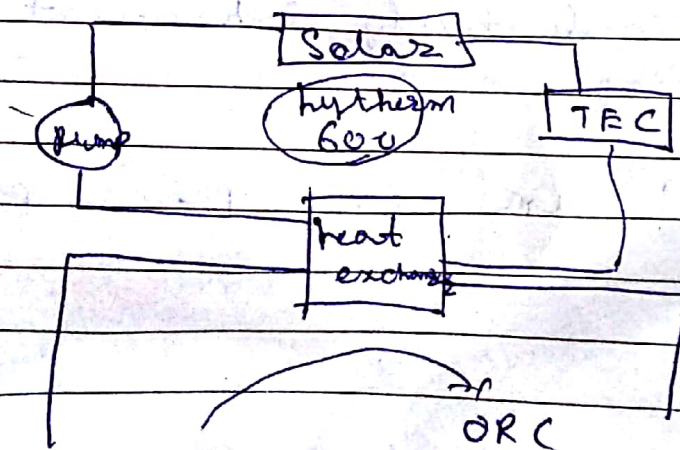 Solar
hytherm
600
TEC
pump
heat
exchanger
ORC